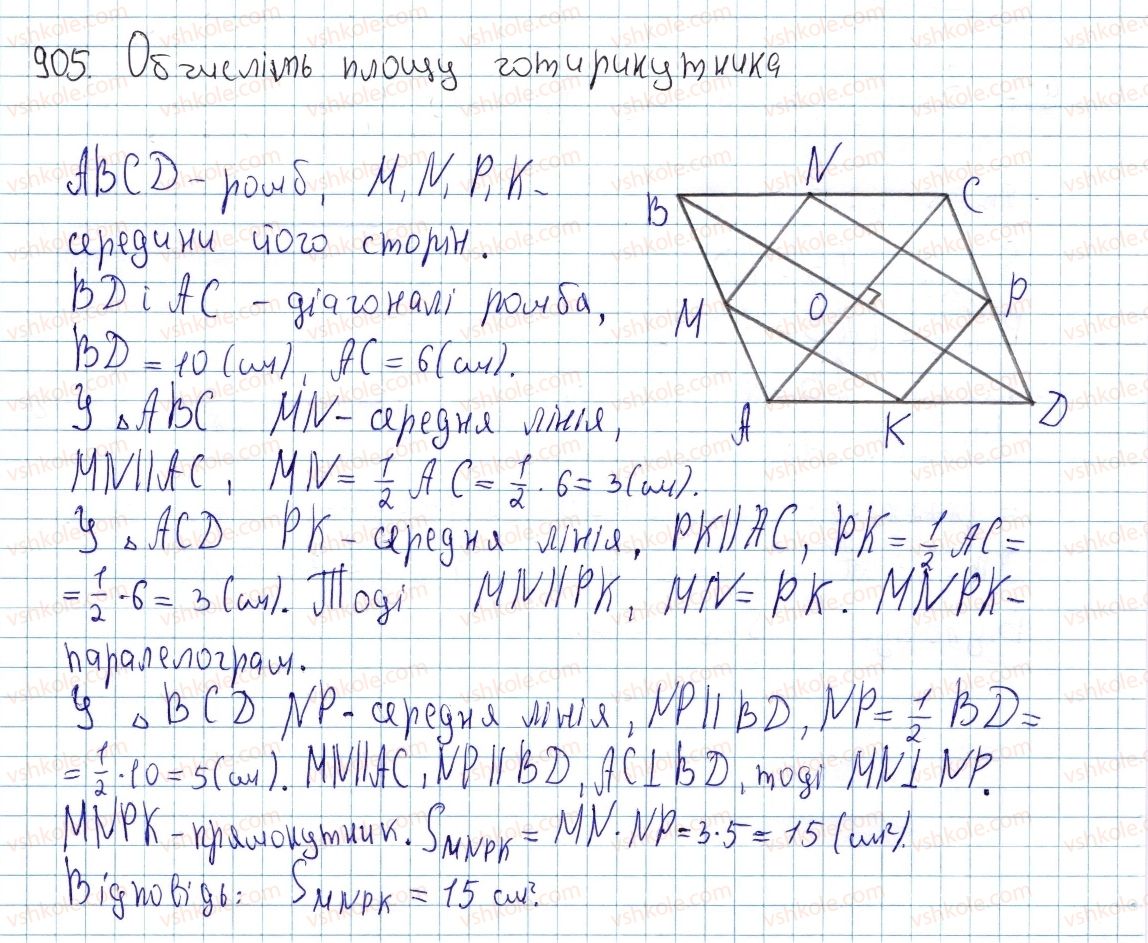 905. Обчисліть площу чотирикутника
ABCD – ромб, M, N, P, K –
середини його сторін.
BD і AC – діагоналі ромба,
BD = 10 (см), AC = 6 (см).
У △ ABC MN – середня лінія,
MN || AC, MN = 1/2 AC = 1/2 · 6 = 3 (см).
У △ ACD PK – середня лінія, PK || AC, PK = 1/2 AC =
= 1/2 · 6 = 3 (см). Тоді MN || PK, MN = PK. MNPK –
паралелограм.
У △ BCD NP – середня лінія, NP || BD, NP = 1/2 BD =
= 1/2 · 10 = 5 (см). MN || AC, NP || BD, AC ⊥ BD, тоді MN ⊥ NP.
MNPK – прямокутник. S MNPK = MN · NP = 3 · 5 = 15 (см²).
Відповідь: S MNPK = 15 см².
B
N
C
M
O
P
A
K
D
vshkole.com